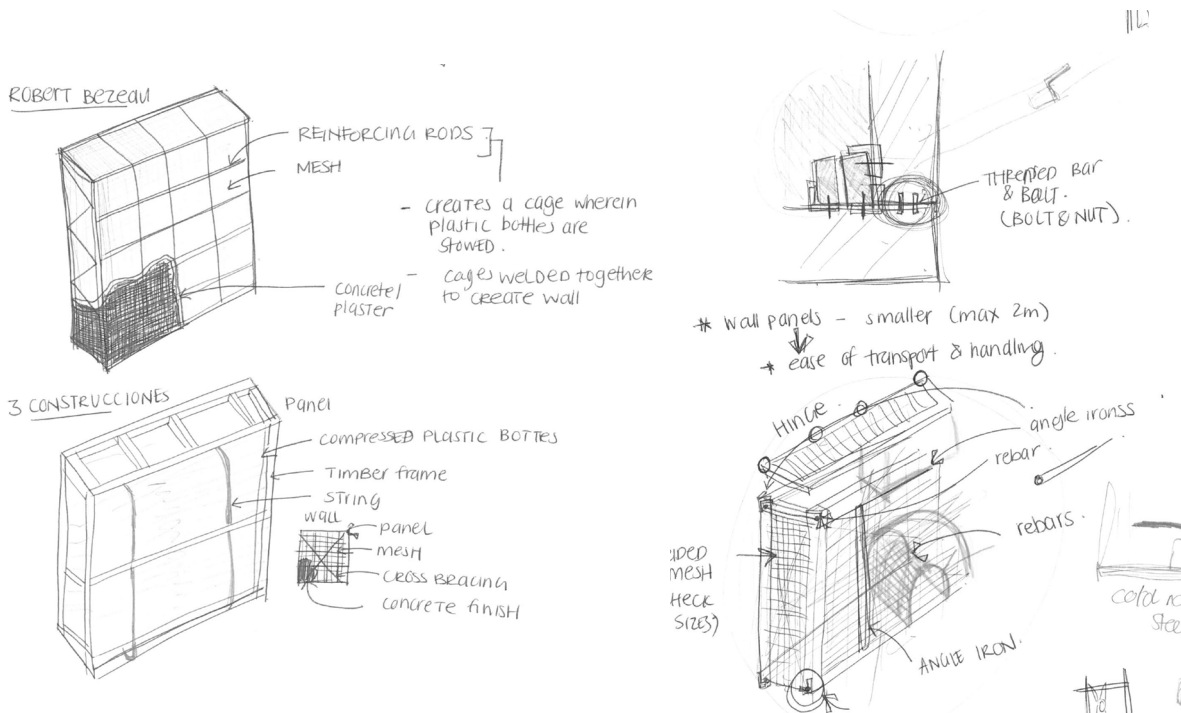 ROBERT BEZEAU
REINFORCING RODS
MESH
- creates a cage wherein
plastic bottles are
STOWED.
- cages WELDED together
to CREATE wall
concrete/
plaster
3 CONSTRUCCIONES
Panel
compressed PLASTIC BOTTES
Timber frame
STRING
WALL
panel
mesh
CROSS BRACING
concrete finish
THREADED Bar
& BOLT.
(BOLT & NUT).
* wall panels - smaller (max 2m)
* ease of transport & handling.
HINGE.
angle ironss
rebar.
rebars.
MESH
SIZES)
ANGLE IRON.